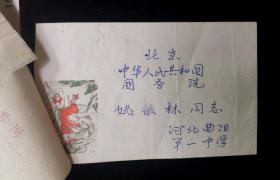 北京
中华人民共和国
国务院
姚依林同志
河北曲阳
第一中学